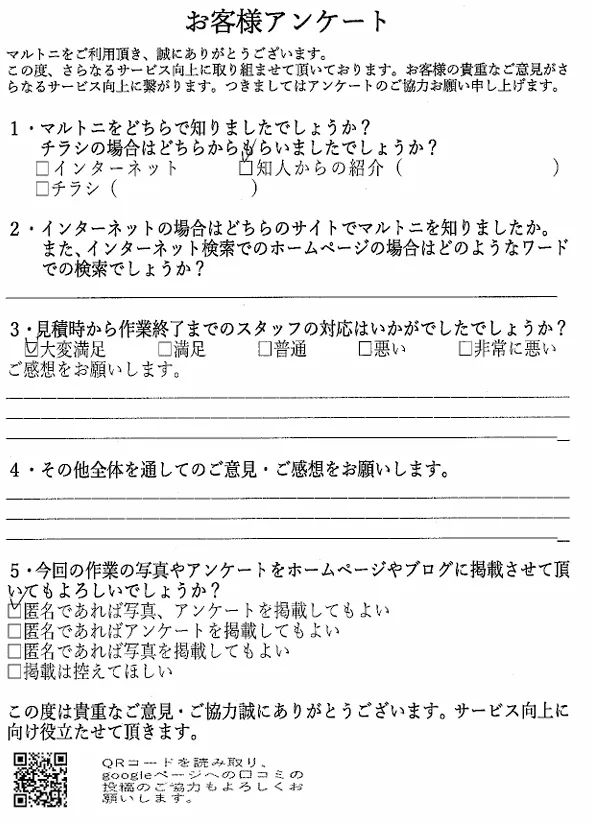 お客様アンケート
マルトニをご利用頂き、誠にありがとうございます。
この度、さらなるサービス向上に取り組ませて頂いております。お客様の貴重なご意見がさ
らなるサービス向上に繋がります。つきましてはアンケートのご協力お願い申し上げます。
1・マルトニをどちらで知りましたでしょうか？
チラシの場合はどちらからもらいましたでしょうか？
□インターネット ☑知人からの紹介（ ）
□チラシ（ ）
2・インターネットの場合はどちらのサイトでマルトニを知りましたか。
また、インターネット検索でのホームページの場合はどのようなワード
での検索でしょうか？
3・見積時から作業終了までのスタッフの対応はいかがでしたでしょうか？
☑大変満足 □満足 □普通 □悪い □非常に悪い
ご感想をお願いします。
4・その他全体を通してのご意見・ご感想をお願いします。
5・今回の作業の写真やアンケートをホームページやブログに掲載させて頂
いてもよろしいでしょうか？
☑匿名であれば写真、アンケートを掲載してもよい
□匿名であればアンケートを掲載してもよい
□匿名であれば写真を掲載してもよい
□掲載は控えてほしい
この度は貴重なご意見・ご協力誠にありがとうございます。サービス向上に
向け役立たせて頂きます。
QRコードを読み取り、
googleページへの口コミの
投稿のご協力もよろしくお
願いします。